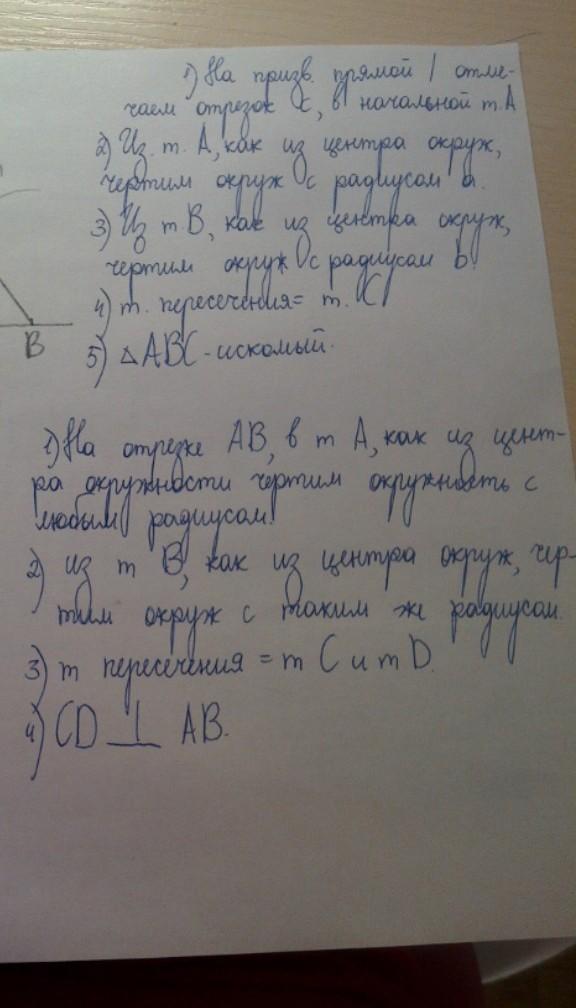 1) На призв. прямой l отме-
чаем отрезок c, в начальной т. А
2) Из. т. А, как из центра окруж,
чертим окруж с радиусом a.
3) Из т В, как из центра окруж,
чертим окруж с радиусом b.
4) т. пересечения = т. С
В
5) △ АВС - искомый.
1) На отрезке АВ, в т А, как из цент-
ра окружности чертим окружность с
любым радиусом.
2) из т В, как из центра окруж, чер-
тим окруж с таким же радиусом.
3) т пересечения = т С и т D.
4) CD ⊥ АВ.